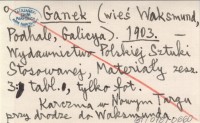 Ganek (wieś Waksmund,
Podhale, Galicya). 1903. —
Wydawnictwo Polskiej Sztuki
Stosowanej, Materiały zesz.
3. tabl. , tylko fot.
Karczma w Nowym Targu
przy drodze do Waksmunda